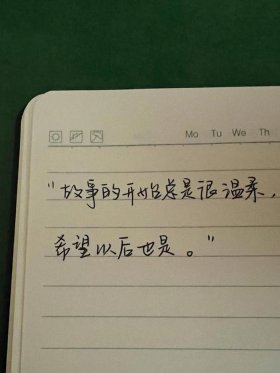 Mo Tu We Th
"故事的开始总是很温柔，
希望以后也是。"